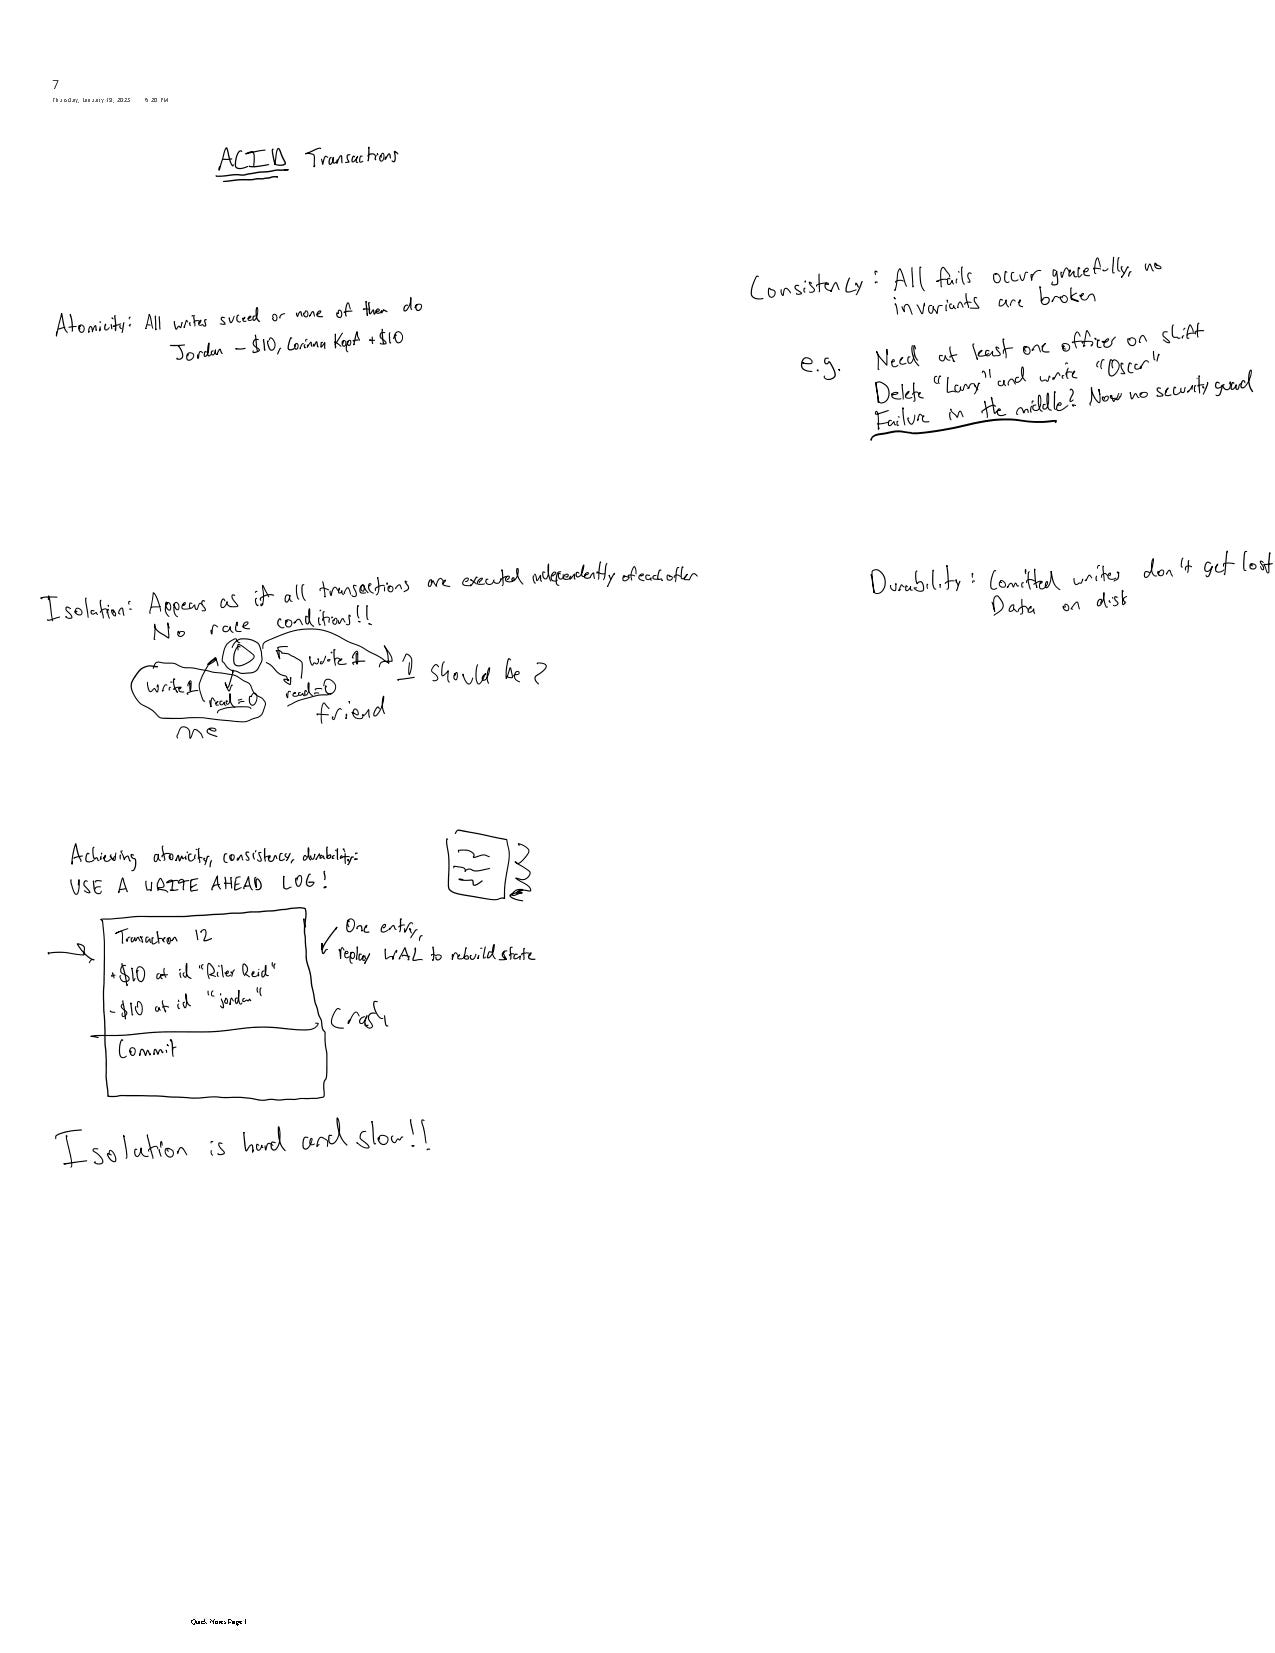 7
Thursday, January 19, 2023 6:20 PM
ACID Transactions
Atomicity: All writes succeed or none of them do
Jordan - $10, Corinna Kopf +$10
Consistency: All fails occur gracefully, no
invariants are broken
e.g. Need at least one officer on shift
Delete "Larry" and write "Oscar"
Failure in the middle? Now no security guard
Isolation: Appears as if all transactions are executed independently of each other
No race conditions!!
write 1
read=0
me
write 1
read=0
friend
1 should be 2
Durability: Comitted writes don't get lost
Data on disk
Achieving atomicity, consistency, durability:
USE A WRITE AHEAD LOG!
Transaction 12
+$10 at id "Riler Reid"
-$10 at id "jordan"
Commit
One entry,
replay WAL to rebuild state
Crash
Isolation is hard and slow!!
Quick Notes Page 1